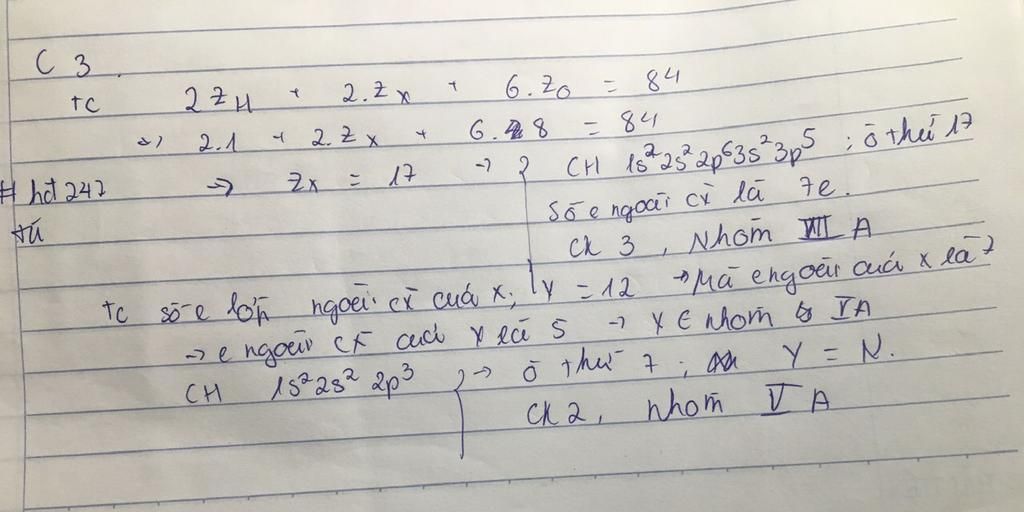 C 3.
tc 2 Z_H + 2. Z_X + 6. Z_O = 84
=> 2.1 + 2. Z_X + 6. 8 = 84
# hot 247 => Z_X = 17 -> CH 1s² 2s² 2p⁶ 3s² 3p⁵ ; ô thứ 17
tú
Số e ngoài cx là 7e.
CK 3, Nhóm VII A
tc số e lớp ngoài cx của X; Y = 12 -> Mà e ngoài của X là 7
-> e ngoài cx của Y là 5 -> Y ∈ nhóm VA
CH 1s² 2s² 2p³ -> ô thứ 7 ; Y = N.
CK 2, nhóm V A